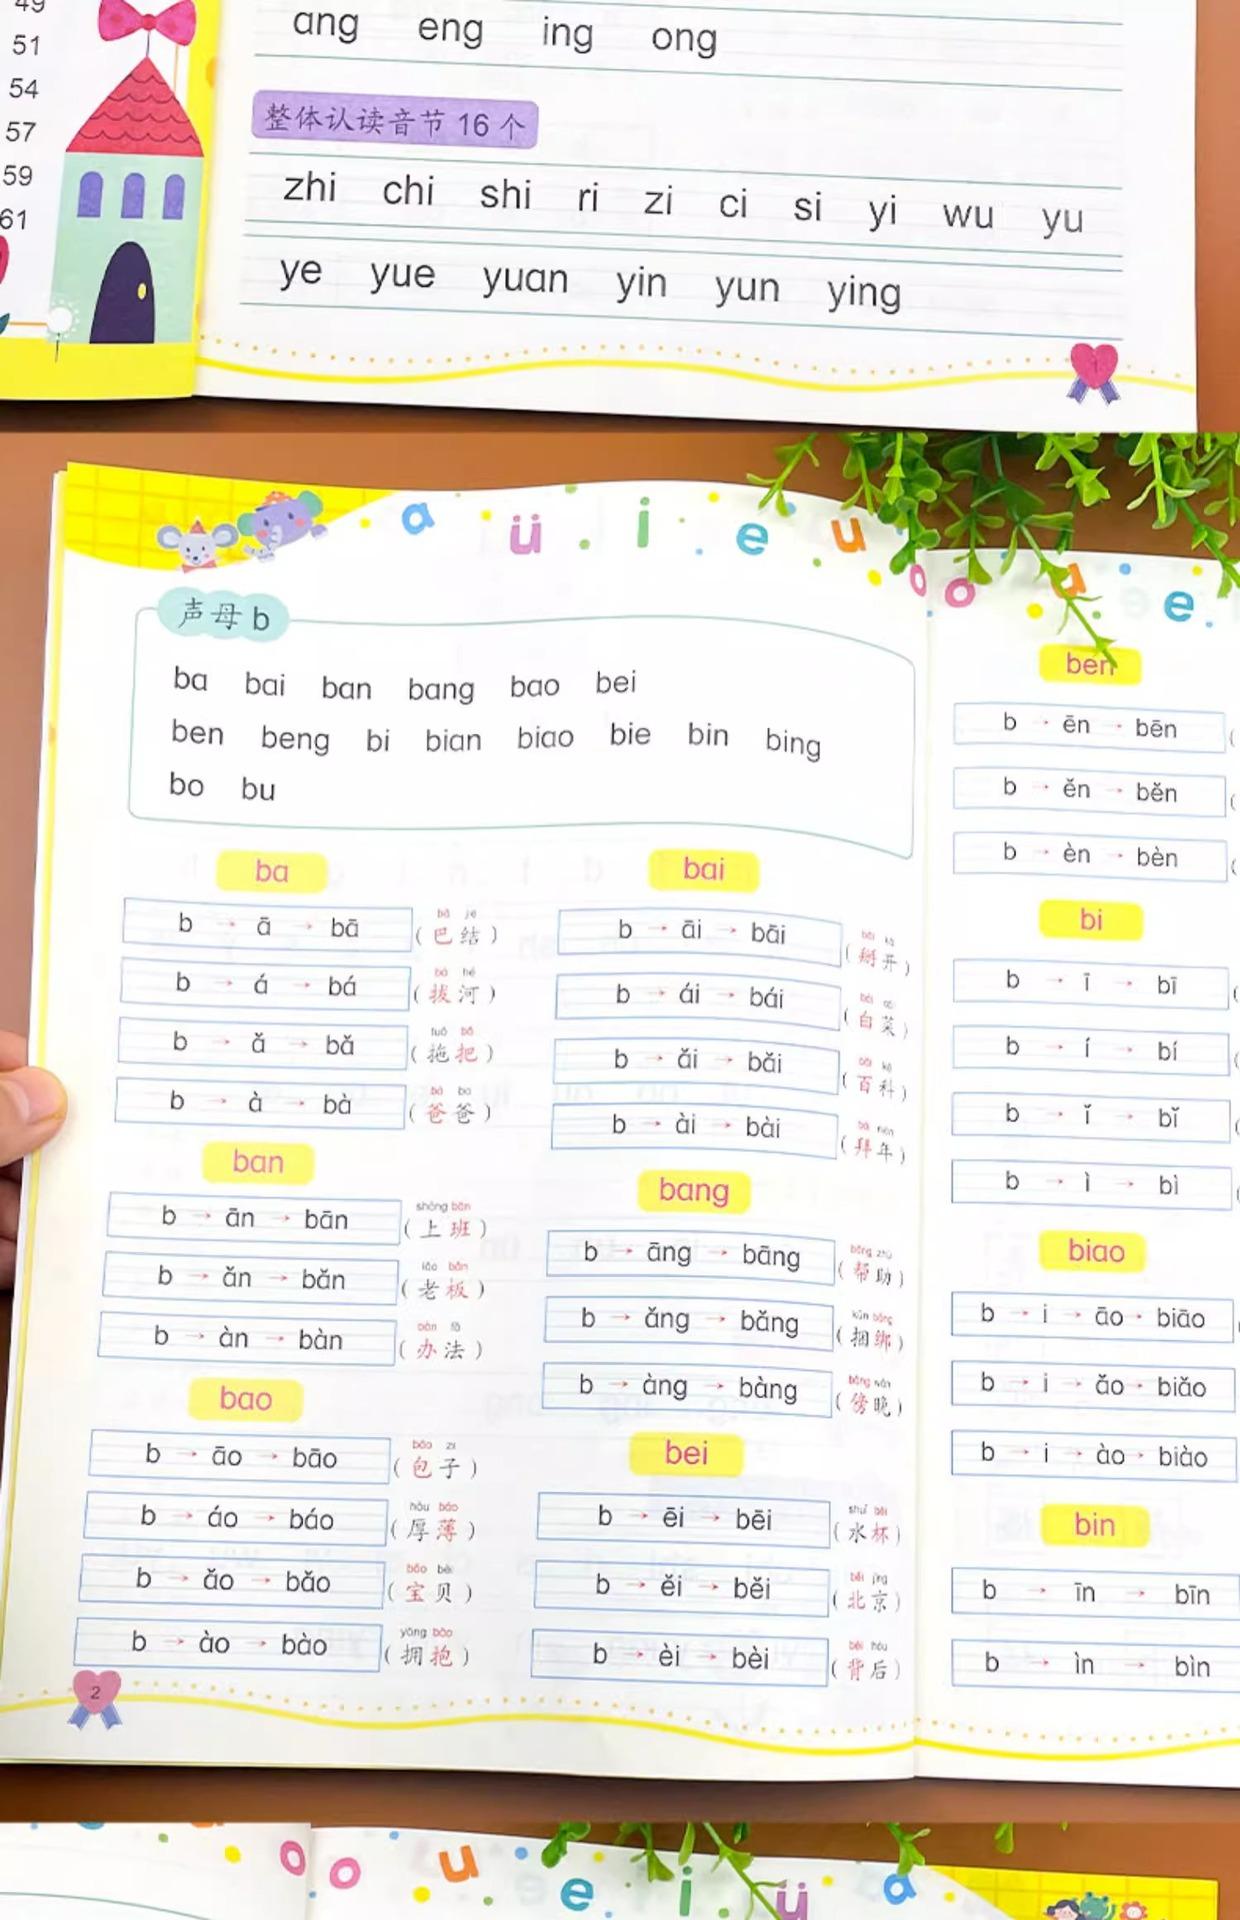 49
51
54
57
59
61
ang eng ing ong
整体认读音节 16 个
zhi chi shi ri zi ci si yi wu yu
ye yue yuan yin yun ying
1
a ü i e u o
o u e
声母 b
ba bai ban bang bao bei
ben beng bi bian biao bie bin bing
bo bu
ba
b → ā → bā
bā jié
(巴结)
b → á → bá
bá hé
(拔河)
b → ǎ → bǎ
tuō bǎ
(拖把)
b → à → bà
bà ba
(爸爸)
ban
b → ān → bān
shàng bān
(上班)
b → ǎn → bǎn
lǎo bǎn
(老板)
b → àn → bàn
bàn fǎ
(办法)
bao
b → āo → bāo
bāo zi
(包子)
b → áo → báo
hòu báo
(厚薄)
b → ǎo → bǎo
bǎo bèi
(宝贝)
b → ào → bào
yōng bào
(拥抱)
bai
b → āi → bāi
bāi kāi
(掰开)
b → ái → bái
bái cài
(白菜)
b → ǎi → bǎi
bǎi kē
(百科)
b → ài → bài
bài nián
(拜年)
bang
b → āng → bāng
bāng zhù
(帮助)
b → ǎng → bǎng
kǔn bǎng
(捆绑)
b → àng → bàng
bàng wǎn
(傍晚)
bei
b → ēi → bēi
shuǐ bēi
(水杯)
b → ěi → běi
běi jīng
(北京)
b → èi → bèi
bèi hòu
(背后)
2
ben
b → ēn → bēn
b → ěn → běn
b → èn → bèn
bi
b → ī → bī
b → í → bí
b → ǐ → bǐ
b → ì → bì
biao
b → i → āo → biāo
b → i → ǎo → biǎo
b → i → ào → biào
bin
b → īn → bīn
b → ìn → bìn
o o u e i ü a